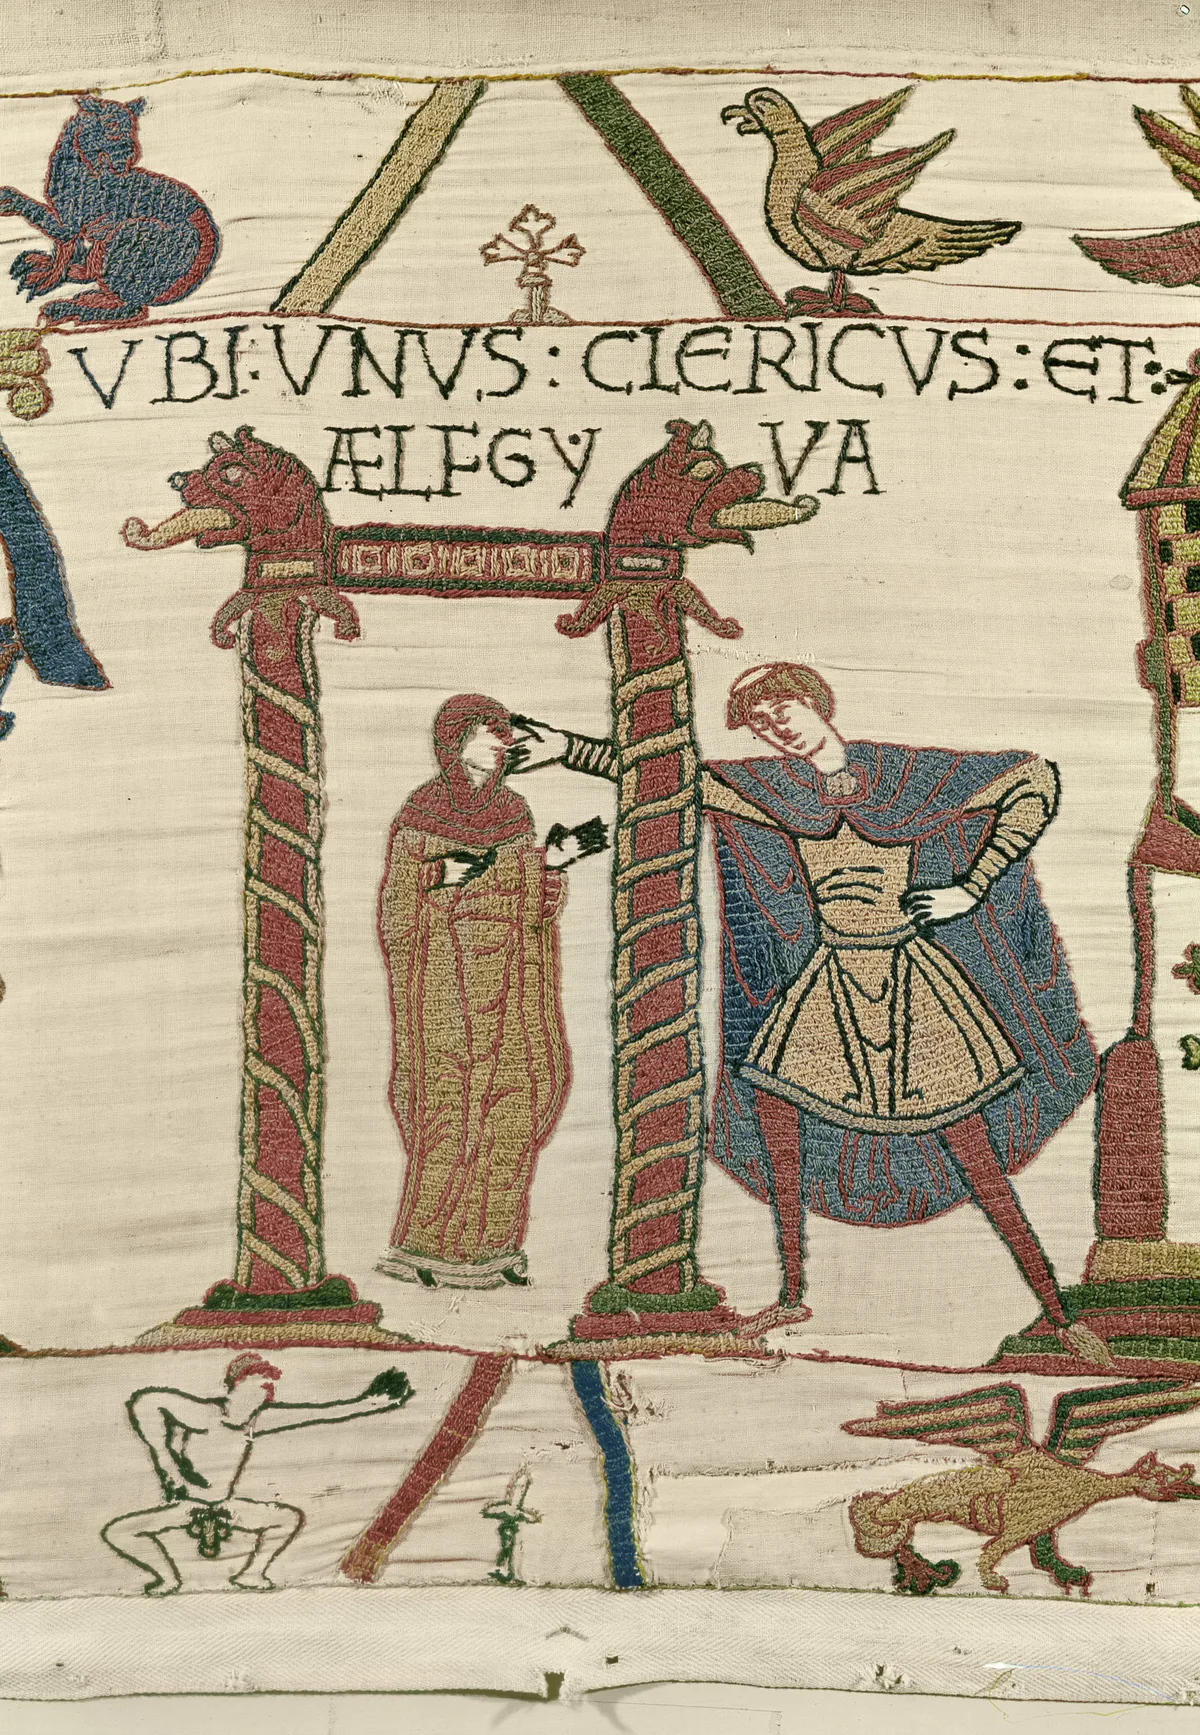 VBI·VNVS : CLERICVS : ET:
ÆLFGYVA